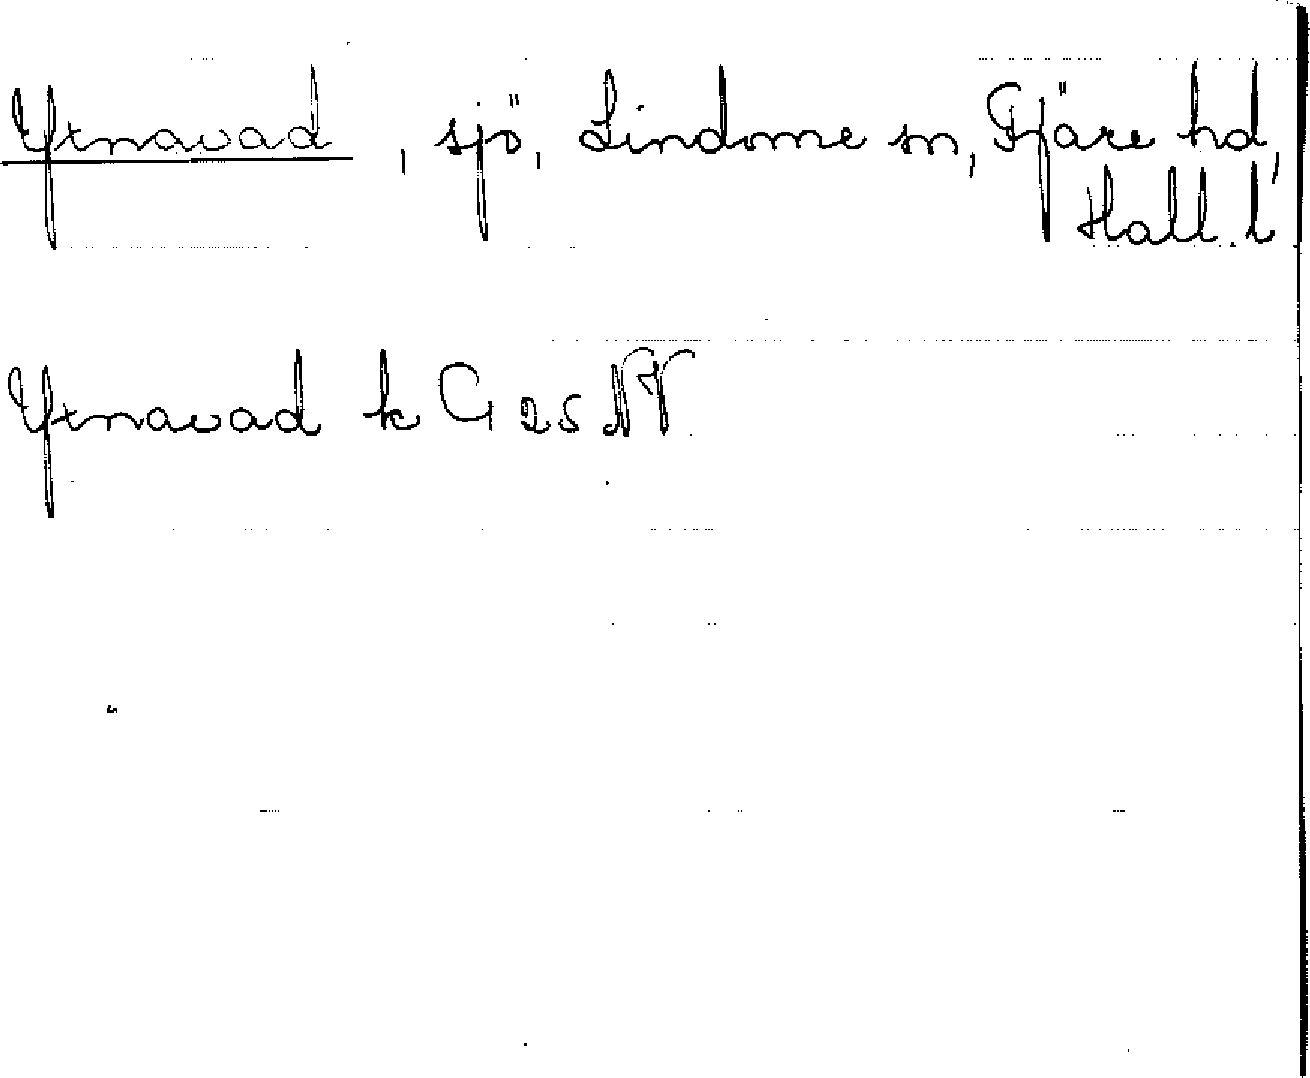 Yxnavad, sjö, Lindome sn, Fjäre hd,
Hall. l
Yxnavad k G 25 NV